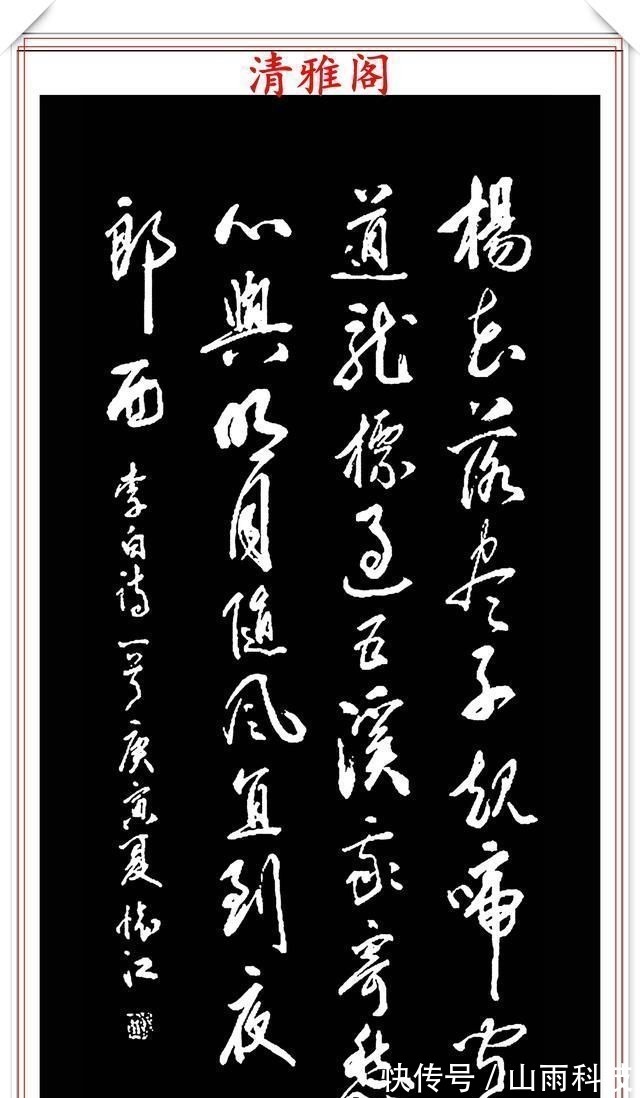 清雅阁
楊花落尽子規啼聞
道龍標過五溪我寄愁
心與明月隨風直到夜
郎西
李白詩一首庚寅夏懷江
快传号 / 山雨科技